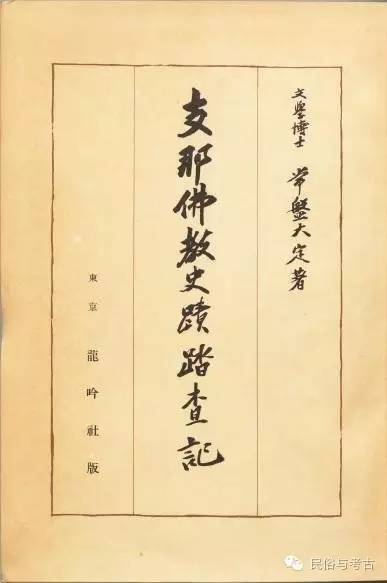 文學博士 常盤大定著
支那佛教史蹟踏查記
東京 龍吟社版
民俗与考古